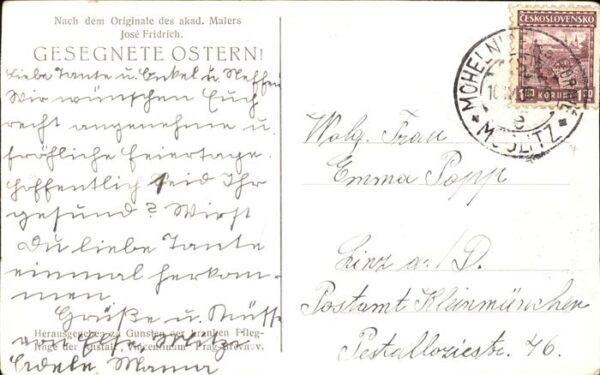 Nach dem Originale des akad. Malers
José Fridrich.
GESEGNETE OSTERN!
Liebe Tante u. Onkel u. Neffen
Wir wünschen Euch
recht angenehme u.
fröhliche Feiertage.
Hoffentlich seid Ihr
gesund? Wirst
Du liebe Tante
einmal herkom-
men.
Grüße u. Küsse
von Else, Mitzi
Adele, Mama
Herausgegeben zu Gunsten der kranken Pfleg-
linge der Anstalt „Vincentinum“ Prag-Břevnov.
ČESKOSLOVENSKO
1.20 KORUNY 1.20
MOHELNICE
MÜGLITZ
Wolg. Frau
Emma Popp
Linz a./D.
Postamt Kleinmünchen
Pestalozzistr. 46.